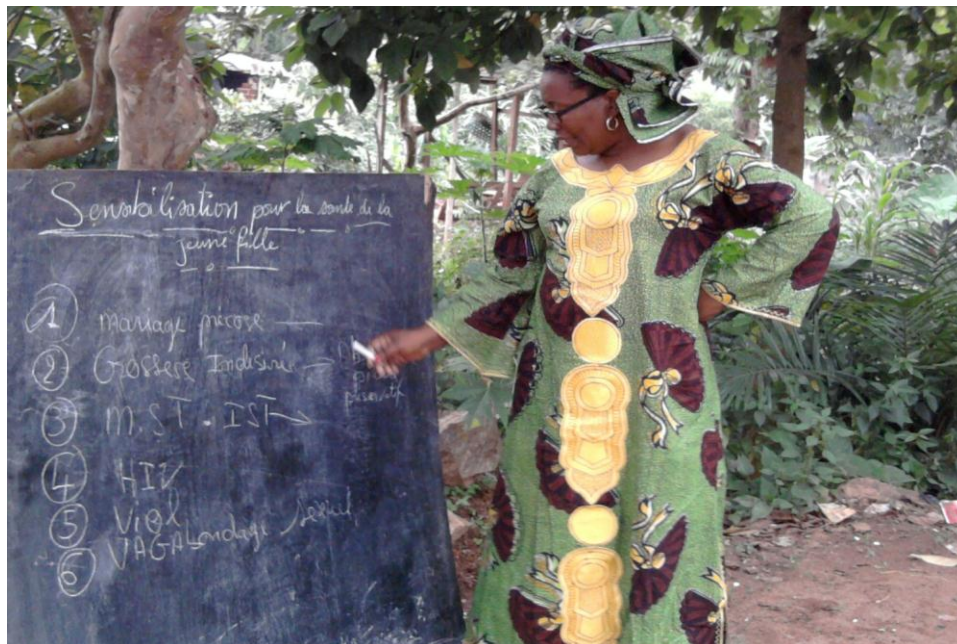 Sensibilisation pour la santé de la
jeune fille
1 mariage precose
2 Grossere Indesirée
3 M.ST. IST
4 HIV
5 Viol
6 VAGAbondage sexuel